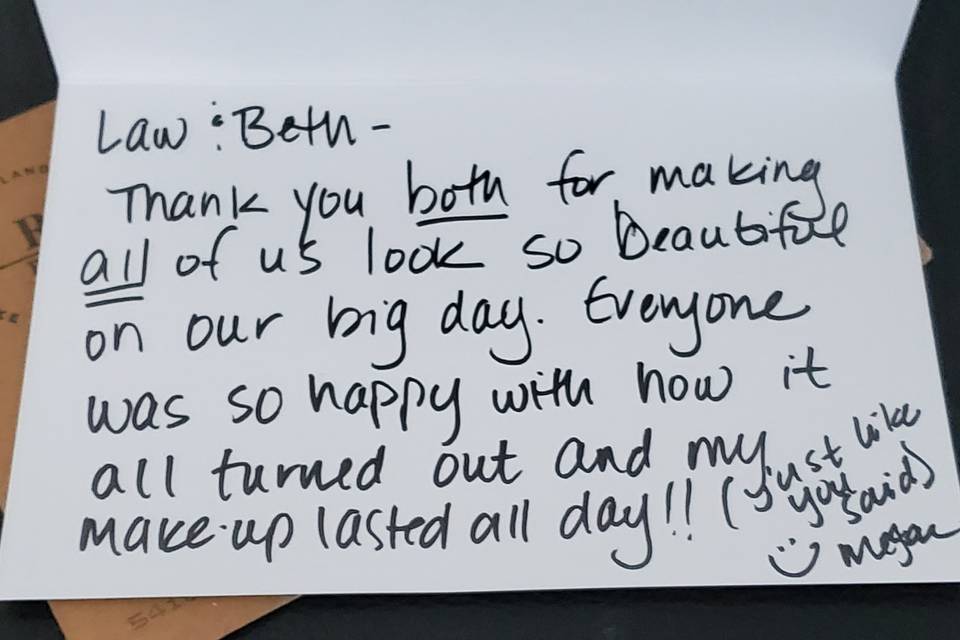 Law & Beth -
Thank you both for making
all of us look so beautiful
on our big day. Everyone
was so happy with how it
all turned out and my
make-up lasted all day!! (just like
you
said)
☺ Megan
LAND
541